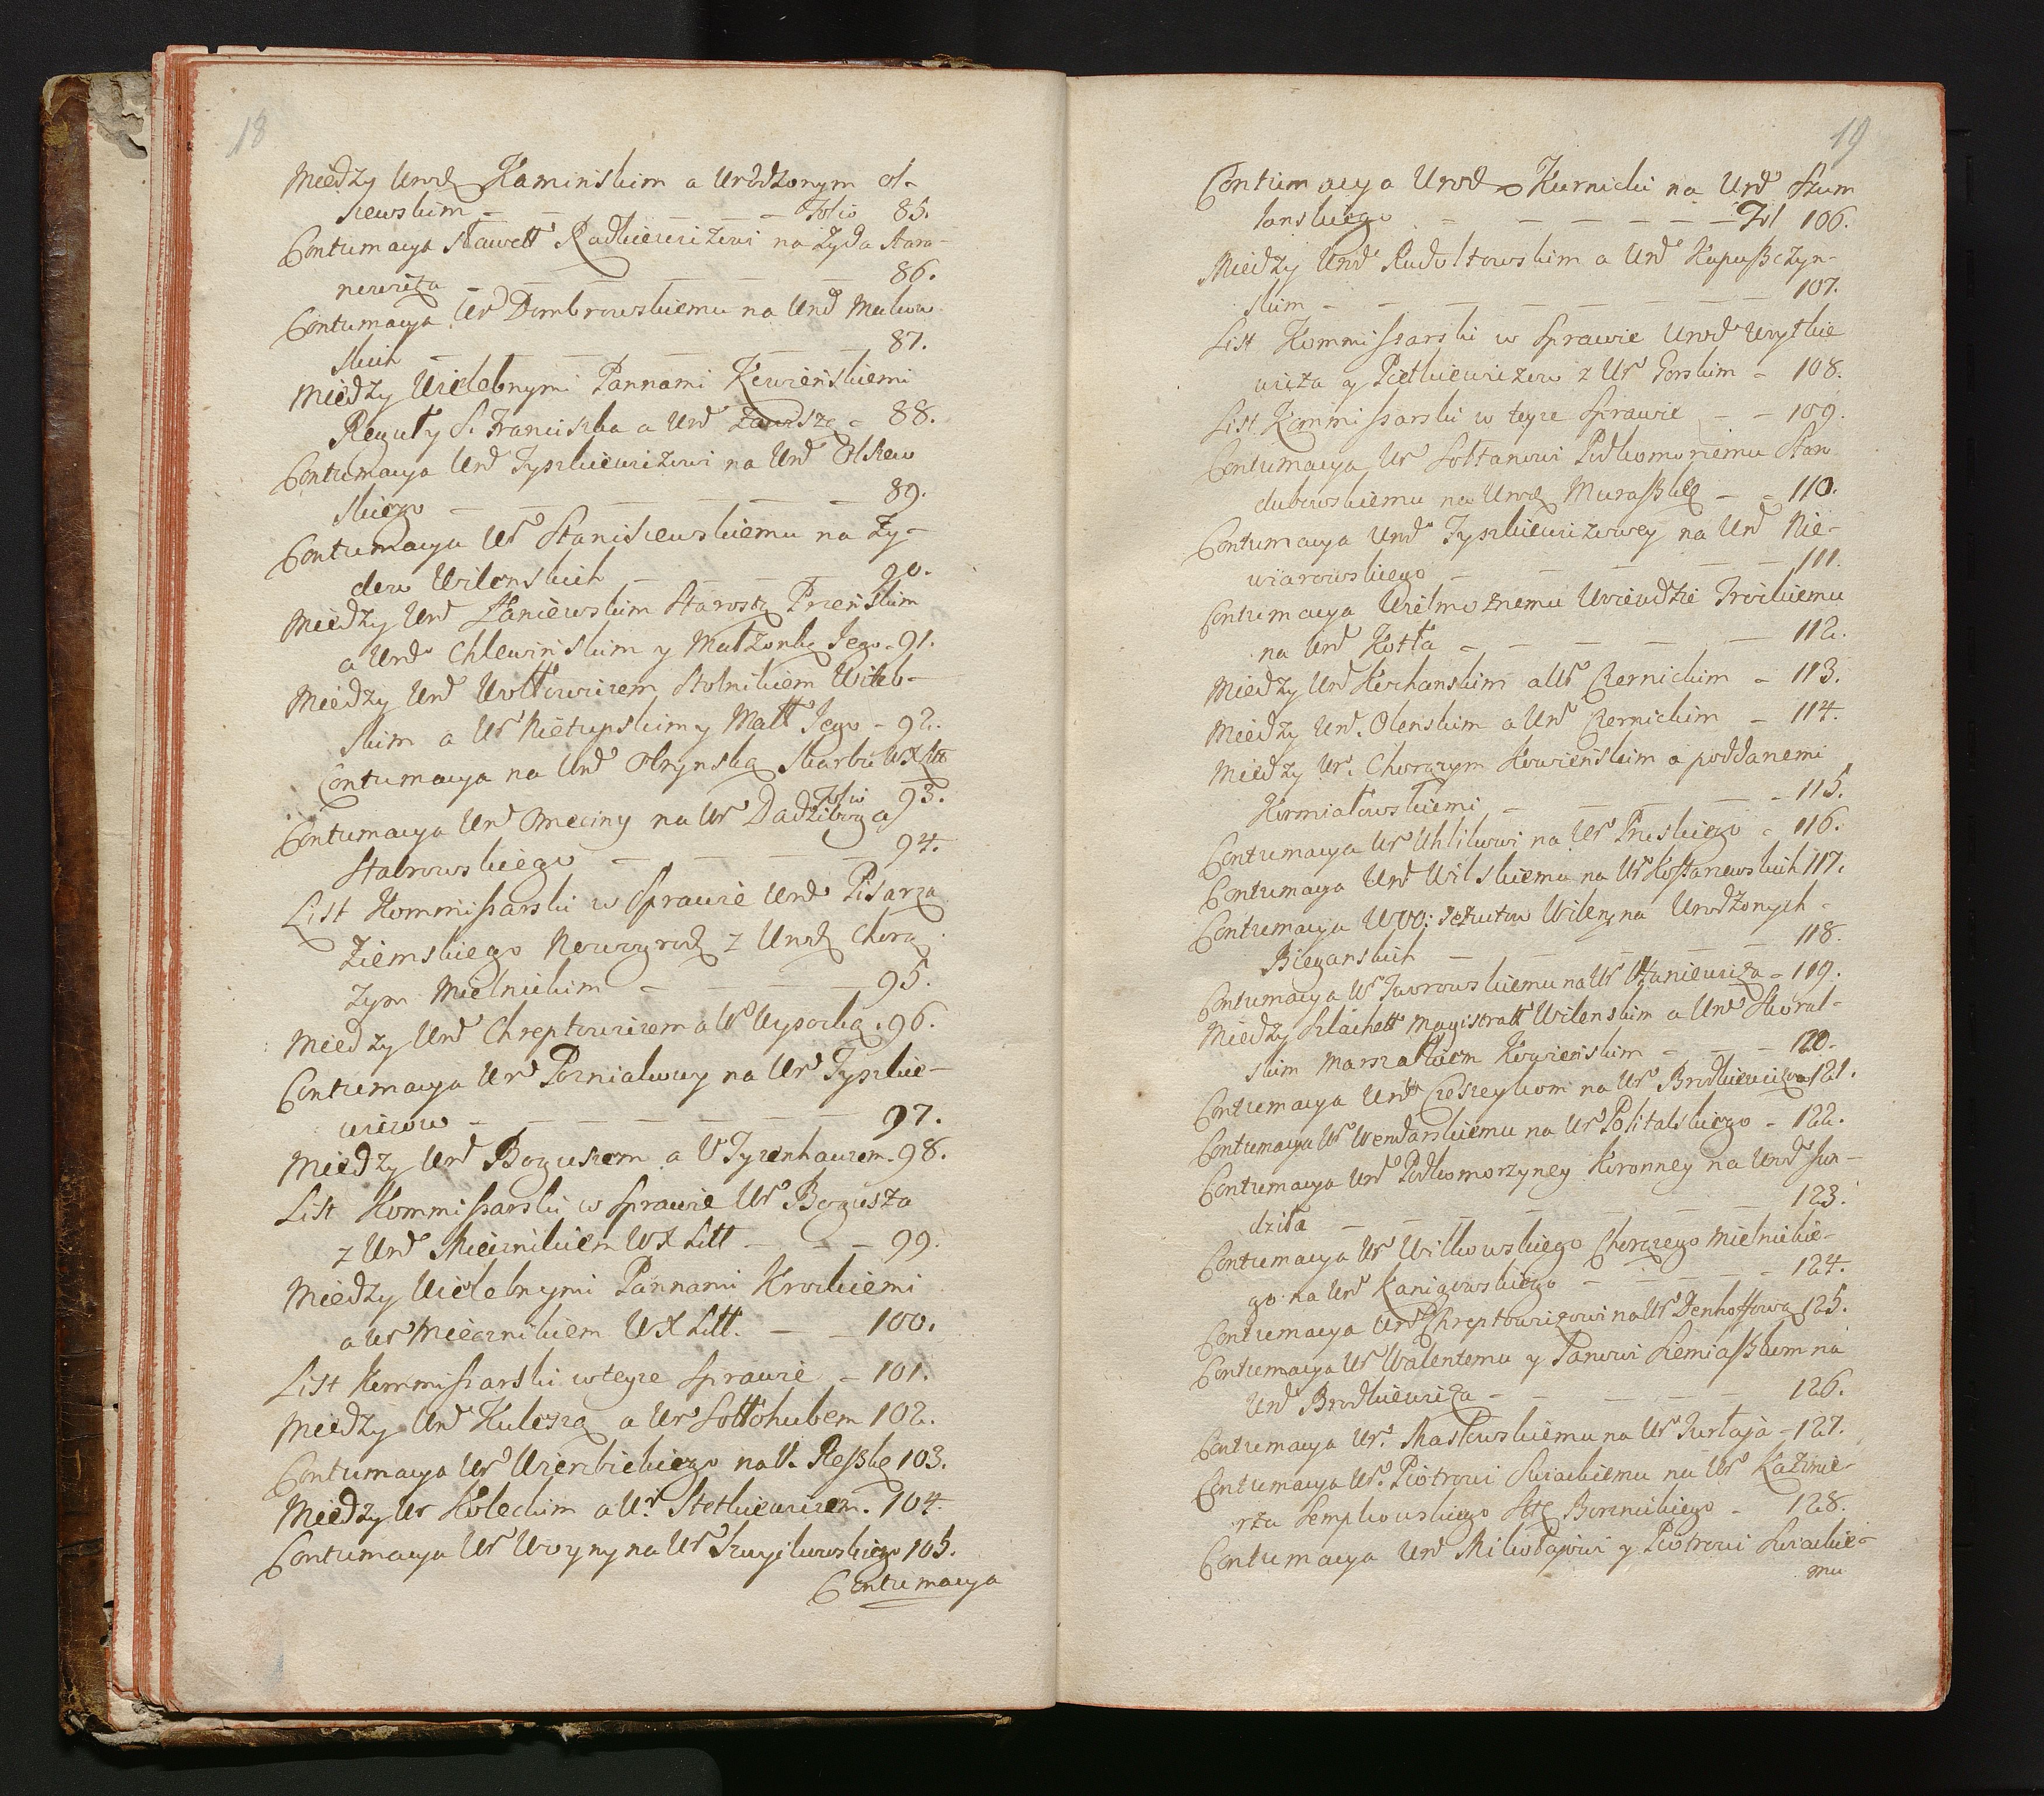 18
Między Urodz Kaminskim a Urodzonym Ol-
szewskim — — — Folio 85.
Contumacya sławett Radkiewiczowi na Żyda Aaro-
nowicza — — — — 86.
Contumacya Ur Dombrowskiemu na Urd
skich — — — — 87.
Między Wielebnymi Pannami Kowienskiemi
Reguły S. Franciszka a Urd Zawiszą - 88.
Contumacya Urd Tyszkiewiczowi na Urd Olszew
skiego — — — — 89.
Contumacya Ur Staniszewskiemu na Ży-
dow Wilenskich — — — — 90.
Między Urd Haniewskim Starostą Prenskim
a Urd Chlewinskim y Małżonką Jego - 91.
Między Urd Wołłowiczem Stolnikiem Witeb-
skim a Ur Nietupskim y Małł Jego - 92.
Contumacya na Urd Obrynską Skarbu WXLitt
Folio 93.
Contumacya Urd Omeciny na Ur Dadziboga
Stabrowskiego — — — — 94.
List Kommissarski w Sprawie Urd Pisarza
Ziemskiego Nowogrodz z Urodz Chorą
żym Mielnickim — — — — 95.
Między Urd Chreptowiczem a Ur Wysocką - 96.
Contumacya Ur Pozniakowey na Ur Tyszkie-
wiczow — — — — 97.
Między Urd Boguszem a U Tyzenhauzem - 98.
List Kommissarski w Sprawie Ur Bogusza
z Urd Miecznikiem WX Litt — — 99.
Między Wielebnymi Pannami Krockiemi
a Ur Miecznikiem WX Litt. — — 100.
List Kommissarski w teyże Sprawie - 101.
Między Urd Kuleszą a Ur Sołłohubem 102.
Contumacya Ur Wierzbickiego na U. Reszkę 103.
Między Ur Koleckim a Ur Stetkiewiczem. 104.
Contumacya Ur Woyny na Ur Szwykowskiego 105.
Contumacya
19
Contumacya Urodz Kurnicki na Urd Szum
lanskiego — — — — Fol 106.
Między Urd Rudoltowskim a Urd Kapuszczyn-
skim — — — — 107.
List Kommissarski w Sprawie Urod Woytkie
wicza y Pietkiewiczow z Ur Gorskim - 108.
List Kommissarski w teyże Sprawie — - 109.
Contumacya Ur Sołtanowi Podkomorzemu Staro
dubowskiemu na Urodz Muraszkę — - 110.
Contumacya Urd Tyszkiewiczowey na Urd Nie-
wiarowskiego — — — — 111.
Contumacya Wielmożnemu Woiewodzie Trockiemu
na Urd Kotła — — — — 112.
Między Urd Kochanskim a Ur Czernickim - 113.
Między Urd. Olenskim a Urd Czernickim - 114.
Między Ur. Chorązym Kowienskim a poddanemi
Kormiałowskiemi — — — — 115.
Contumacya Ur Uklikowi na Ur Pruskiego - 116.
Contumacya Urd Wilskiemu na Ur Kossarzewskich 117.
Contumacya WOO: Jezuitow Wilenz na Urodzonych
Bieganskich — — — — 118.
Contumacya Ur Jaworowskiemu na Ur Staniewicza - 119.
Między Szlachett Magistratt Wilenskim a Urd Skoral-
skim Marszałkiem Kowienskim — — 120.
Contumacya Urd Czeszeykom na Ur Brodkiewiczow 121.
Contumacya Ur Wendorskiemu na Ur Politalskiego - 122.
Contumacya Urd Podkomorzyney Koronney na Urd Jun-
dziła — — — — 123.
Contumacya Ur Witkowskiego Chorązego Mielnickie-
go na Urd Kanigowskiego — — — — 124.
Contumacya Urd Chreptowiczowi na Ur Denhoffową 125.
Contumacya Ur Walentemu y Janowi Siemiaszkom na
Urd Brodkiewicza — — — — 126.
Contumacya Ur. Masłowskiemu na Ur Surtaja - 127.
Contumacya Ur. Piotrowi Swiackiemu na Ur Kazimie-
rza Sempkowskiego Stę Borcnickiego - 128.
Contumacya Urd Mikołajowi y Piotrowi Swiackie-
mu